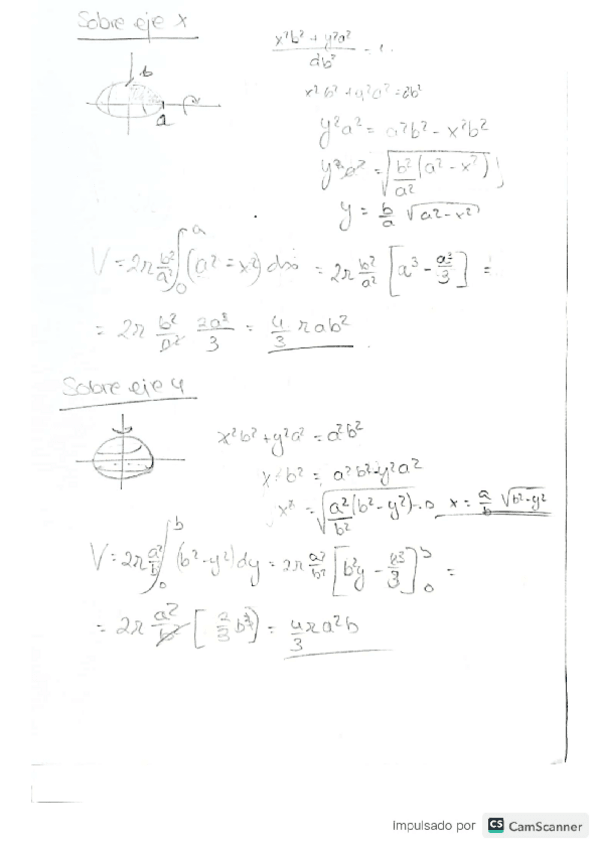 Sobre eje x
b
a
x²b² + y²a² / a²b² = 1
x²b² + y²a² = a²b²
y²a² = a²b² - x²b²
y = √(b²/a² (a² - x²))
y = b/a √(a² - x²)
V = 2π b²/a² ∫₀ᵃ (a² - x²) dx = 2π b²/a² [a³ - a³/3] =
= 2π b²/a² 2a³/3 = 4/3 π ab²
Sobre eje y
x²b² + y²a² = a²b²
x²b² = a²b² - y²a²
x = √(a²/b² (b² - y²)) → x = a/b √(b² - y²)
V = 2π a²/b² ∫₀ᵇ (b² - y²) dy = 2π a²/b² [b²y - y³/3]₀ᵇ =
= 2π a²/b² [2/3 b³] = 4/3 π a²b
Impulsado por CS CamScanner